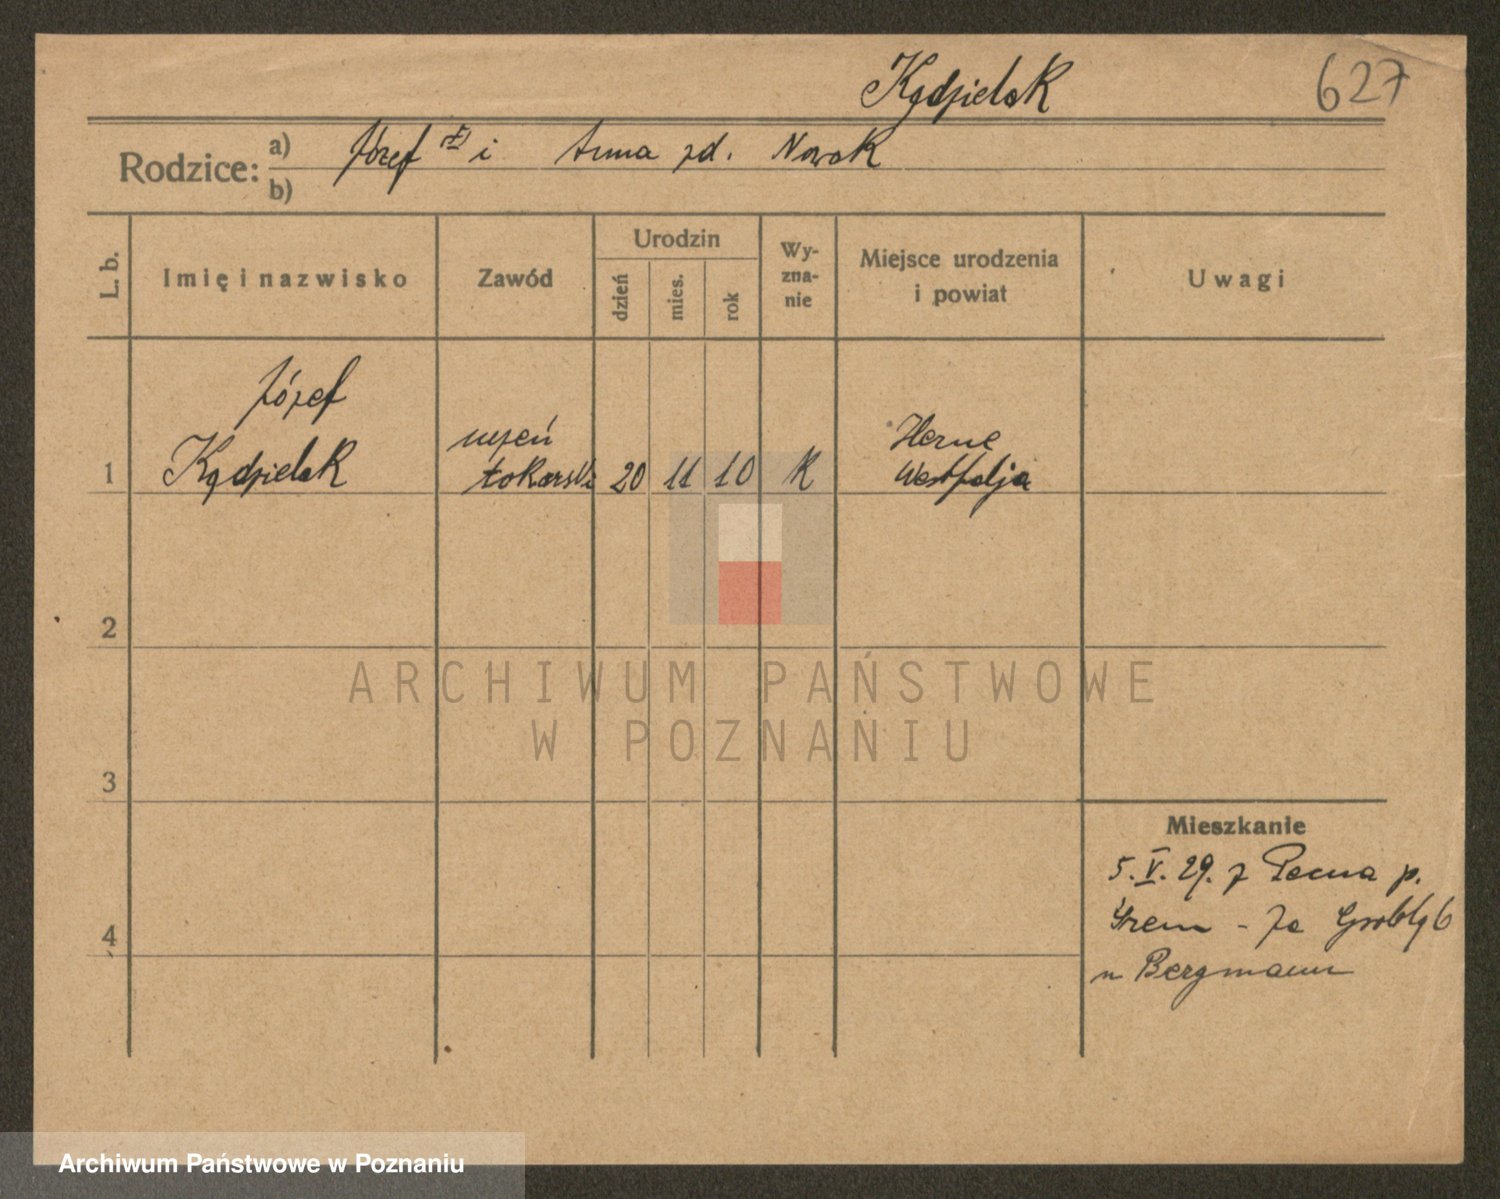 Kądzielak
627
Rodzice: a) Józef i Anna zd. Nowak
b)
L. b.
Imię i nazwisko
Zawód
Urodzin
dzień
mies.
rok
Wy-
zna-
nie
Miejsce urodzenia
i powiat
Uwagi
Józef
1 Kądzielak
uczeń
tokarski
20 11 10 K
Herne
Westfalja
2
3
4
Mieszkanie
5. V. 29. z Pecna p.
Śrem - Za Groblą 6
u Bergmann
ARCHIWUM PAŃSTWOWE
W POZNANIU
Archiwum Państwowe w Poznaniu